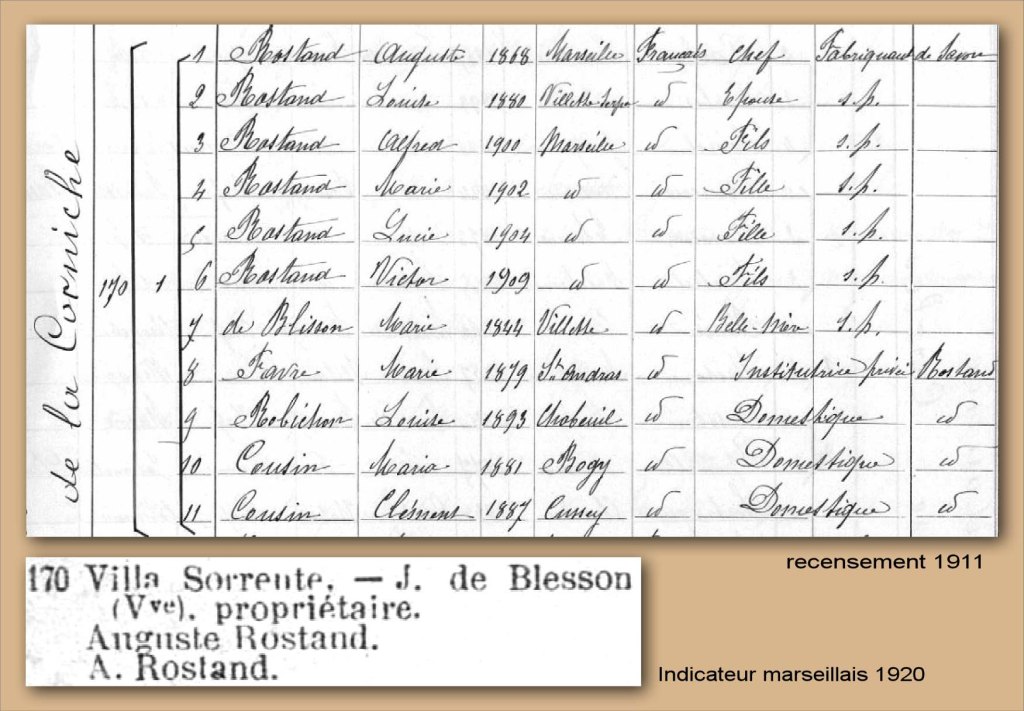 de la Corniche
170 1
1 Rostand Auguste 1868 Marseille Français Chef Fabriquant de Savon
2 Rostand Louise 1880 Villette-Serpa id Epouse s.p.
3 Rostand Alfred 1900 Marseille id Fils s.p.
4 Rostand Marie 1902 id id Fille s.p.
5 Rostand Lucie 1904 id id Fille s.p.
6 Rostand Victor 1909 id id Fils s.p.
7 de Blisson Marie 1844 Villette id Belle-Mère s.p.
8 Favre Marie 1879 id Institutrice privée Rostand
9 Robichon Louise 1893 Chabeuil id Domestique id
10 Cousin Maria 1881 Bogy id Domestique id
11 Cousin Clément 1887 id Domestique id
recensement 1911
170 Villa Sorrente. — J. de Blesson
(Vve). propriétaire.
Auguste Rostand.
A. Rostand.
Indicateur marseillais 1920